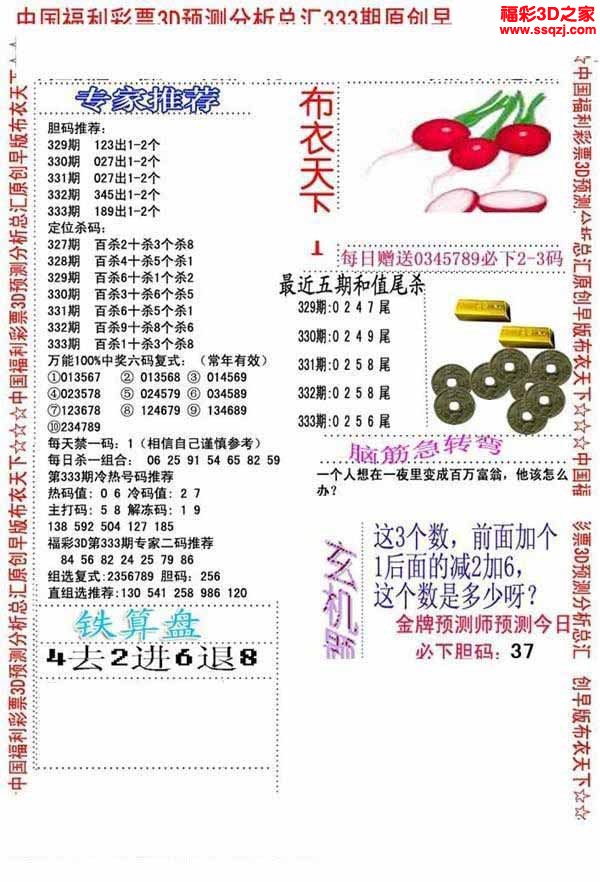 福彩3D之家
www.ssqzj.com
中国福利彩票3D预测分析总汇333期原创早
专家推荐
胆码推荐:
329期 123出1-2个
330期 027出1-2个
331期 027出1-2个
332期 345出1-2个
333期 189出1-2个
定位杀码:
327期 百杀2十杀3个杀8
328期 百杀4十杀5个杀1
329期 百杀6十杀1个杀2
330期 百杀3十杀6个杀5
331期 百杀4十杀6个杀1
332期 百杀9十杀8个杀6
333期 百杀1十杀3个杀8
万能100%中奖六码复式:(常年有效)
①013567 ② 013568 ③ 014569
④023578 ⑤ 024579 ⑥ 034589
⑦123678 ⑧ 124679 ⑨ 134689
⑩234789
每天禁一码:1(相信自己谨慎参考)
每日杀一组合: 06 25 91 54 65 82 59
第333期冷热号码推荐
热码值:0 6 冷码值:2 7
主打码:5 8 解冻码:1 9
138 592 504 127 185
福彩3D第333期专家二码推荐
84 56 82 24 25 79 86
组选复式:2356789 胆码:256
直组选推荐:130 541 258 986 120
铁算盘
4去2进6退8
布衣天下
每日赠送0345789必下2-3码
最近五期和值尾杀
329期:0 2 4 7 尾
330期:0 2 4 9 尾
331期:0 2 5 8 尾
332期:0 2 5 8 尾
333期:0 2 5 6 尾
脑筋急转弯
一个人想在一夜里变成百万富翁,他该怎么
办?
玄机
这3个数,前面加个
1后面的减2加6,
这个数是多少呀?
金牌预测师预测今日
必下胆码:37
中国福利彩票3D预测分析总汇原创早版布衣天下☆☆☆中国福利彩票3D预测分析总汇原创早版布衣天
☆中国福利彩票3D预测分析总汇原创早版布衣天下☆☆☆中国福
彩票3D预测分析总汇 创早版布衣天下☆☆